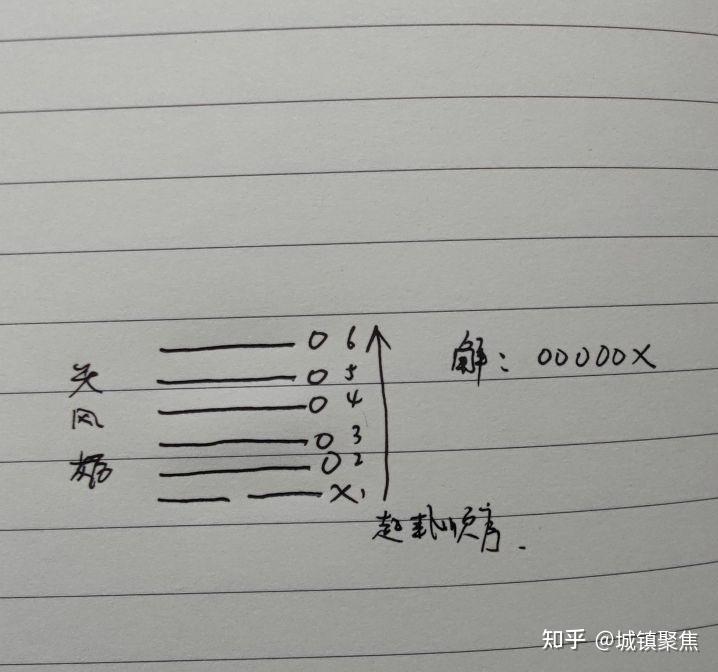 O 6
O 5
O 4
O 3
O 2
X 1
天
风
姤
解：OOOOOX
起卦顺序.
知乎 @城镇聚焦